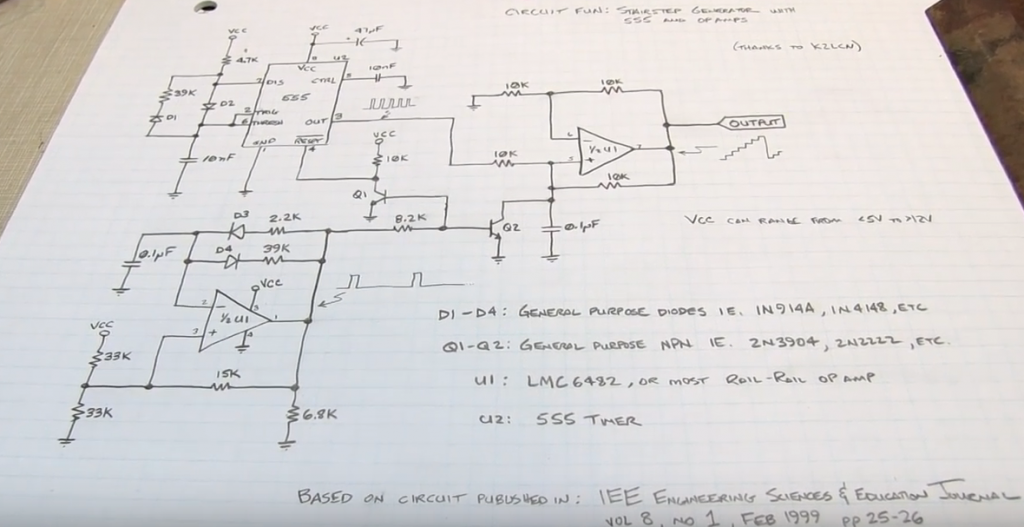 CIRCUIT FUN: STAIRSTEP GENERATOR WITH
555 AND OPAMPS
(THANKS TO K2LCN)
VCC
VCC
47µF
4.7K
8
U2
VCC
7 DIS
CTRL 5
10nF
39K
D2
555
D1
2 TRIG
6 THRESH
OUT 3
GND
RESET
1
4
10nF
VCC
10K
Q1
10K
10K
10K
½U1
10K
OUTPUT
Q2
0.1µF
VCC CAN RANGE FROM <5V TO >12V
D3
2.2K
8.2K
D4
39K
0.1µF
VCC
2
½U1
3
1
VCC
33K
15K
33K
6.8K
D1-D4: GENERAL PURPOSE DIODES IE. 1N914A, 1N4148, ETC
Q1-Q2: GENERAL PURPOSE NPN IE. 2N3904, 2N2222, ETC.
U1: LMC6482, OR MOST RAIL-RAIL OP AMP
U2: 555 TIMER
BASED ON CIRCUIT PUBLISHED IN: IEE ENGINEERING SCIENCES & EDUCATION JOURNAL
VOL 8, NO 1, FEB 1999 PP 25-26